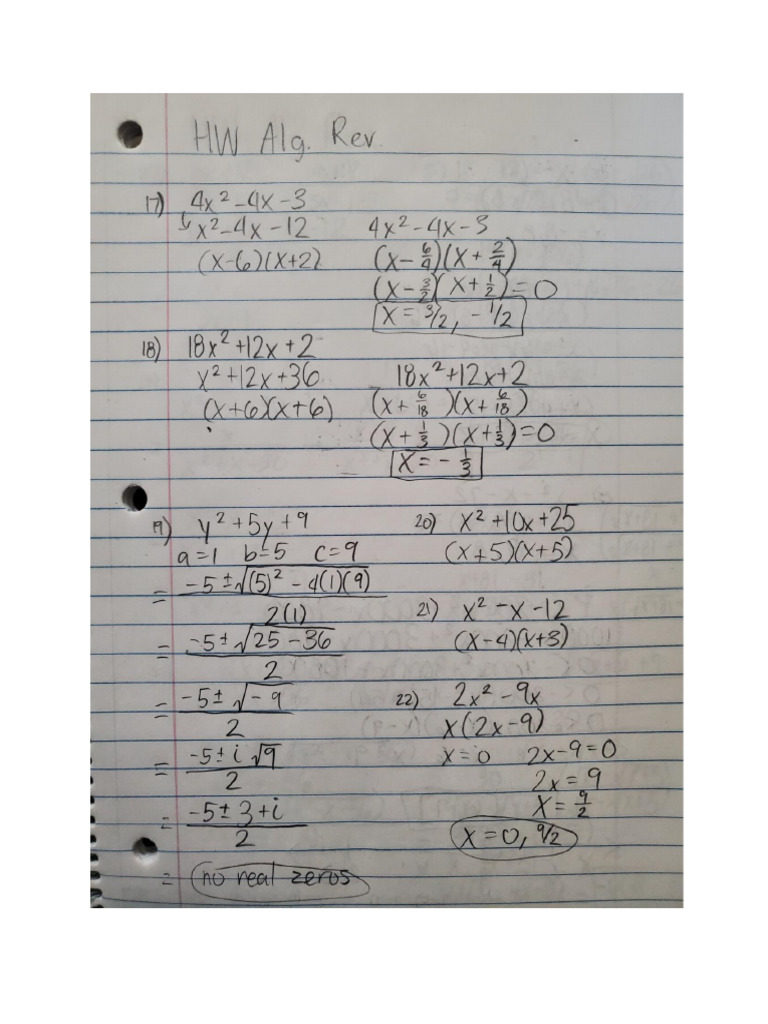 HW Alg. Rev.
17) 4x² - 4x - 3
x² - 4x - 12
(x-6)(x+2)
4x² - 4x - 3
(x - 6/4)(x + 2/4)
(x - 3/2)(x + 1/2) = 0
x = 3/2, - 1/2
18) 18x² + 12x + 2
x² + 12x + 36
(x+6)(x+6)
18x² + 12x + 2
(x + 6/18)(x + 6/18)
(x + 1/3)(x + 1/3) = 0
x = - 1/3
19) y² + 5y + 9
a = 1 b = 5 c = 9
= -5 ± √(5)² - 4(1)(9) / 2(1)
= -5 ± √25 - 36 / 2
= -5 ± √-9 / 2
= -5 ± i √9 / 2
= -5 ± 3 + i / 2
= no real zeros
20) x² + 10x + 25
(x+5)(x+5)
21) x² - x - 12
(x-4)(x+3)
22) 2x² - 9x
x(2x-9)
x = 0 2x - 9 = 0
2x = 9
x = 9/2
x = 0, 9/2